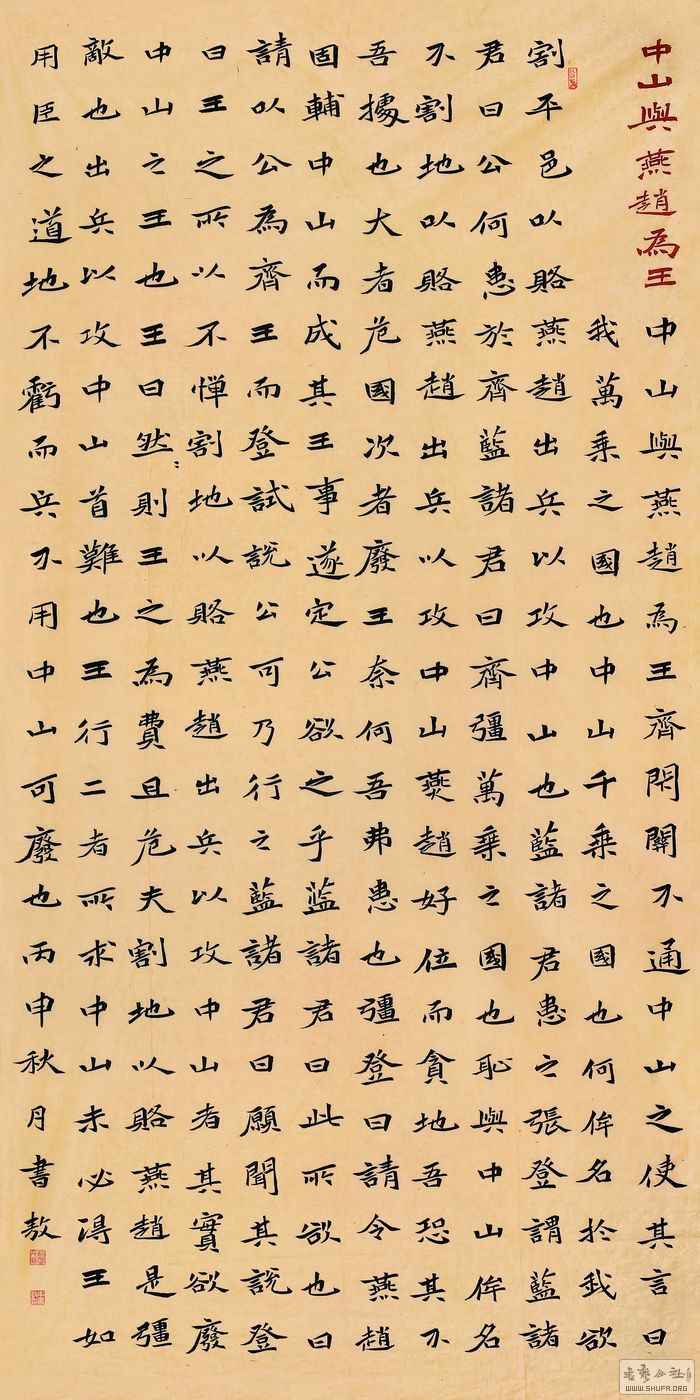 中山與燕趙為王中山與燕趙為王齊閇關不通中山之使其言曰
我萬乘之國也中山千乘之國也何侔名於我欲
割平邑以賂燕趙出兵以攻中山也藍諸君患之張登謂藍諸
君曰公何患於齊藍諸君曰齊彊萬乘之國也恥與中山侔名
不割地以賂燕趙出兵以攻中山燕趙好位而貪地吾恐其不
吾據也大者危國次者廢王奈何吾弗患也彊登曰請令燕趙
固輔中山而成其王事遂定公欲之乎藍諸君曰此所欲也曰
請以公為齊王而登試說公可乃行之藍諸君曰願聞其說登
曰王之所以不憚割地以賂燕趙出兵以攻中山者其實欲廢
中山之王也王曰然則王之為費且危夫割地以賂燕趙是彊
敵也出兵以攻中山首難也王行二者所求中山未必得王如
用臣之道地不虧而兵不用中山可廢也丙申秋月書敖
WWW.SHUFA.ORG